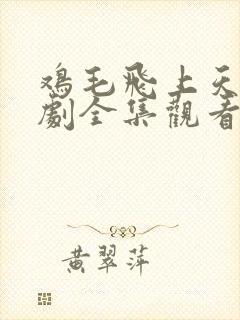 鸡毛飛上天
劇全集觀看
黄翠萍